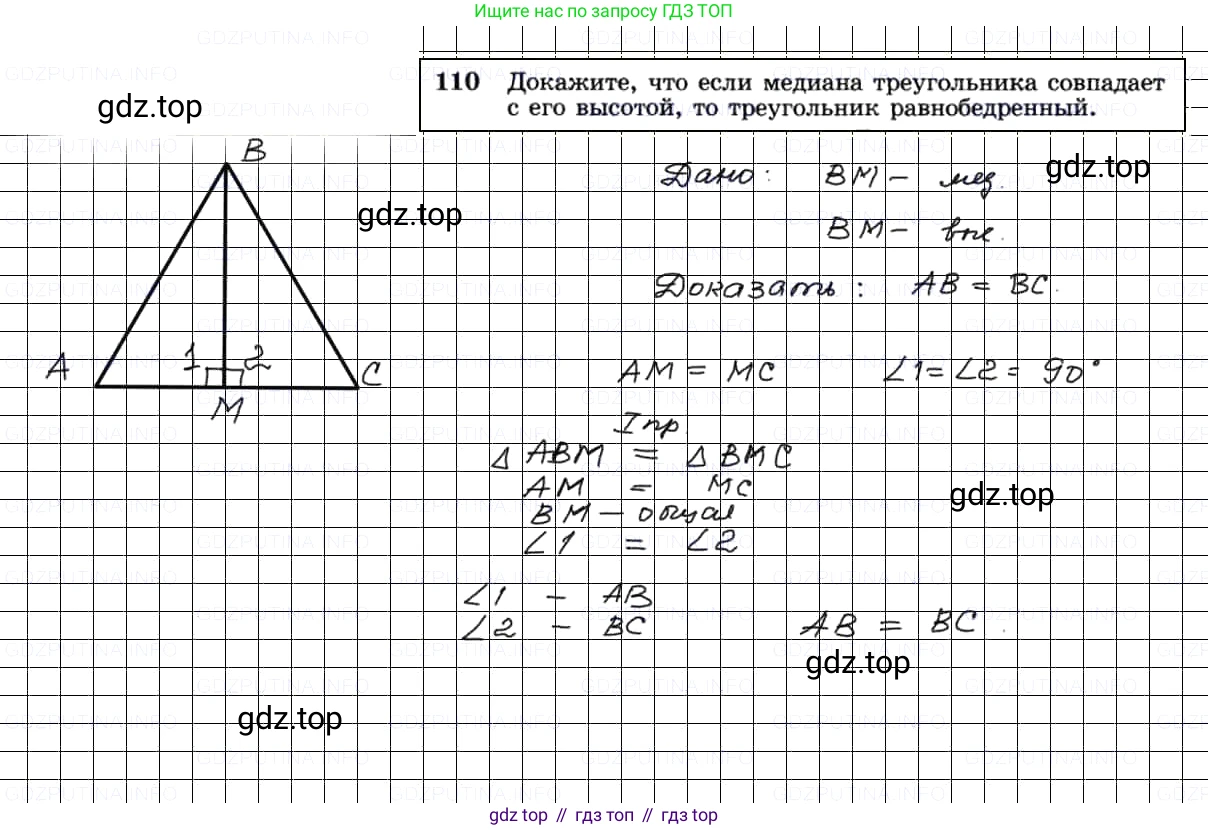 Ищите нас по запросу ГДЗ ТОП
GDZPUTINA.INFO GDZPUTINA.INFO GDZPUTINA.INFO
110 Докажите, что если медиана треугольника совпадает
с его высотой, то треугольник равнобедренный.
gdz.top
B
Дано: BM – мед.
gdz.top
gdz.top
BM – выс.
Доказать: AB = BC.
1 2
A C
M
AM = MC ∠1 = ∠2 = 90°
I пр.
Δ ABM = Δ BMC
AM = MC
gdz.top
BM – общая
∠1 = ∠2
∠1 – AB
∠2 – BC AB = BC.
gdz.top
gdz.top
gdz top // гдз топ // гдз top